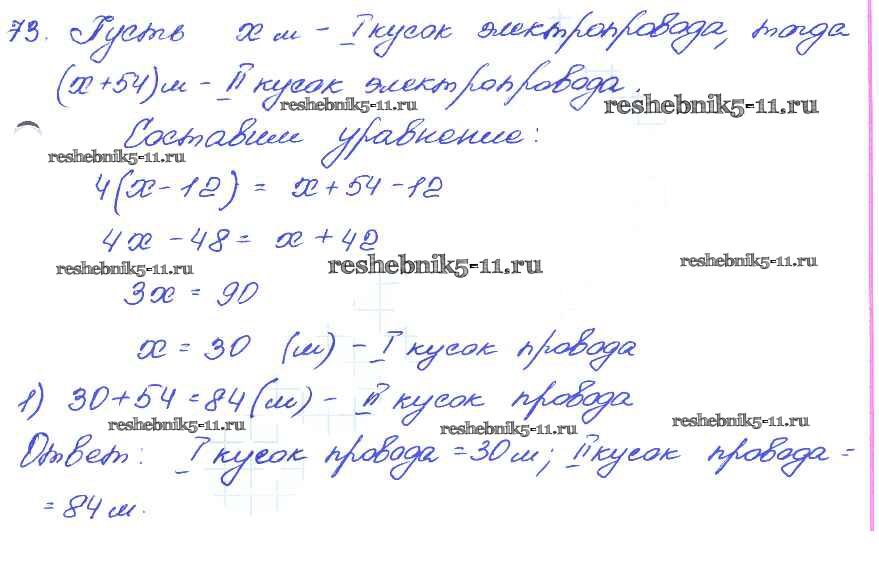 73. Пусть x м - I кусок электропровода, тогда
(x+54)м - II кусок электропровода.
reshebnik5-11.ru reshebnik5-11.ru
Составим уравнение:
reshebnik5-11.ru
4(x-12) = x+54-12
4x-48 = x+42
reshebnik5-11.ru reshebnik5-11.ru reshebnik5-11.ru
3x = 90
x = 30 (м) - I кусок провода
1) 30+54=84(м) - II кусок провода
reshebnik5-11.ru reshebnik5-11.ru reshebnik5-11.ru
Ответ: I кусок провода = 30м; II кусок провода =
= 84м.